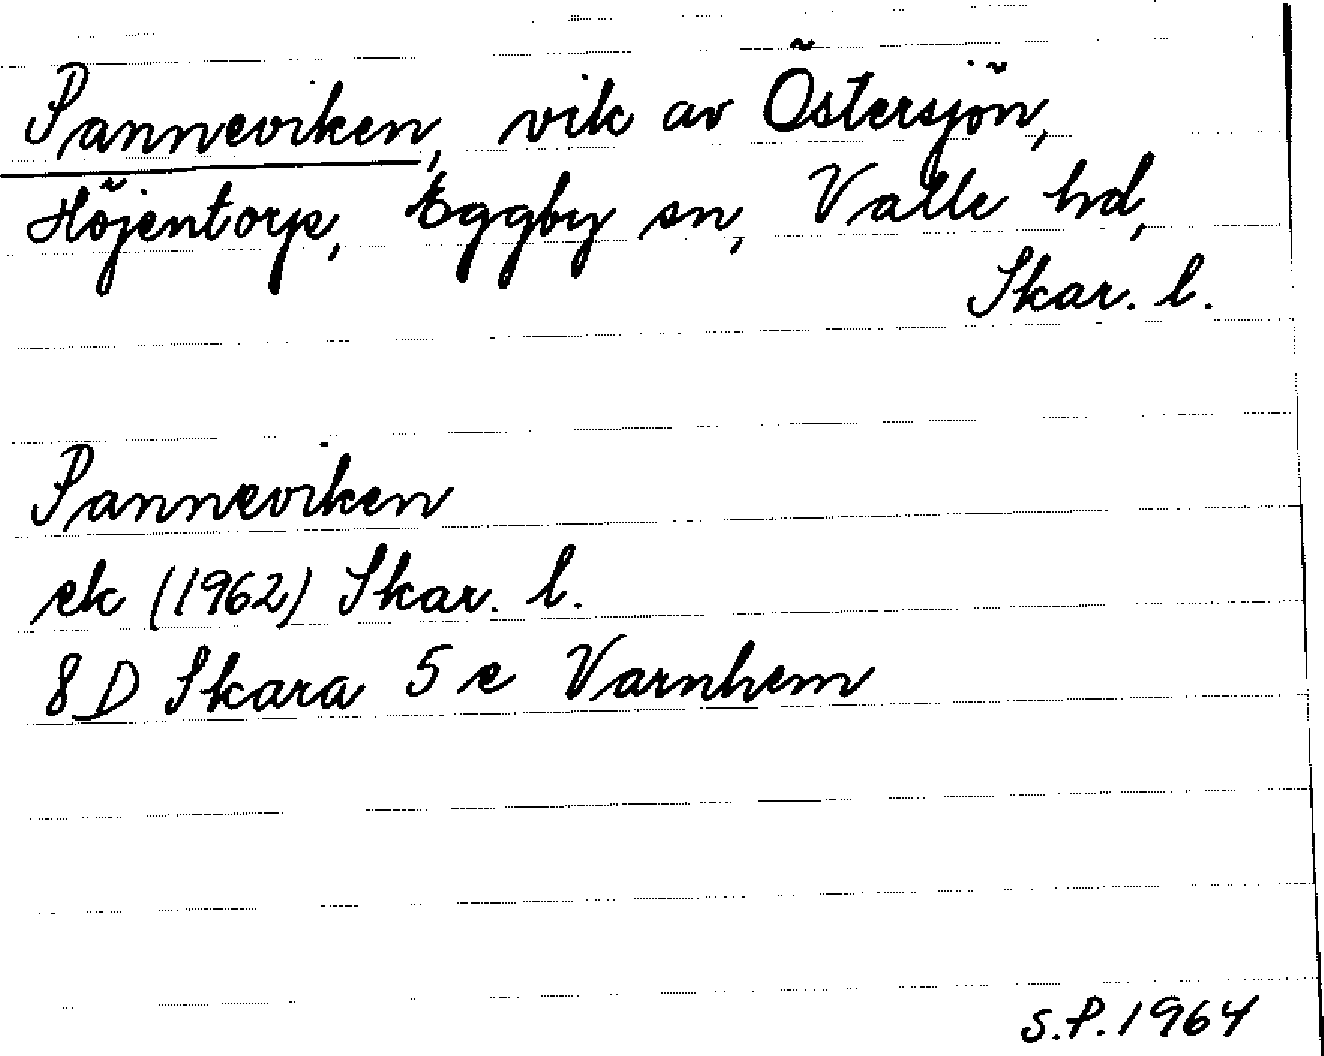 Panneviken, vik av Östersjön,
Höjentorp, Eggby sn, Valle hd,
Skar. l.
Panneviken
ek (1962) Skar. l.
8 D Skara 5 e Varnhem
S.P. 1964